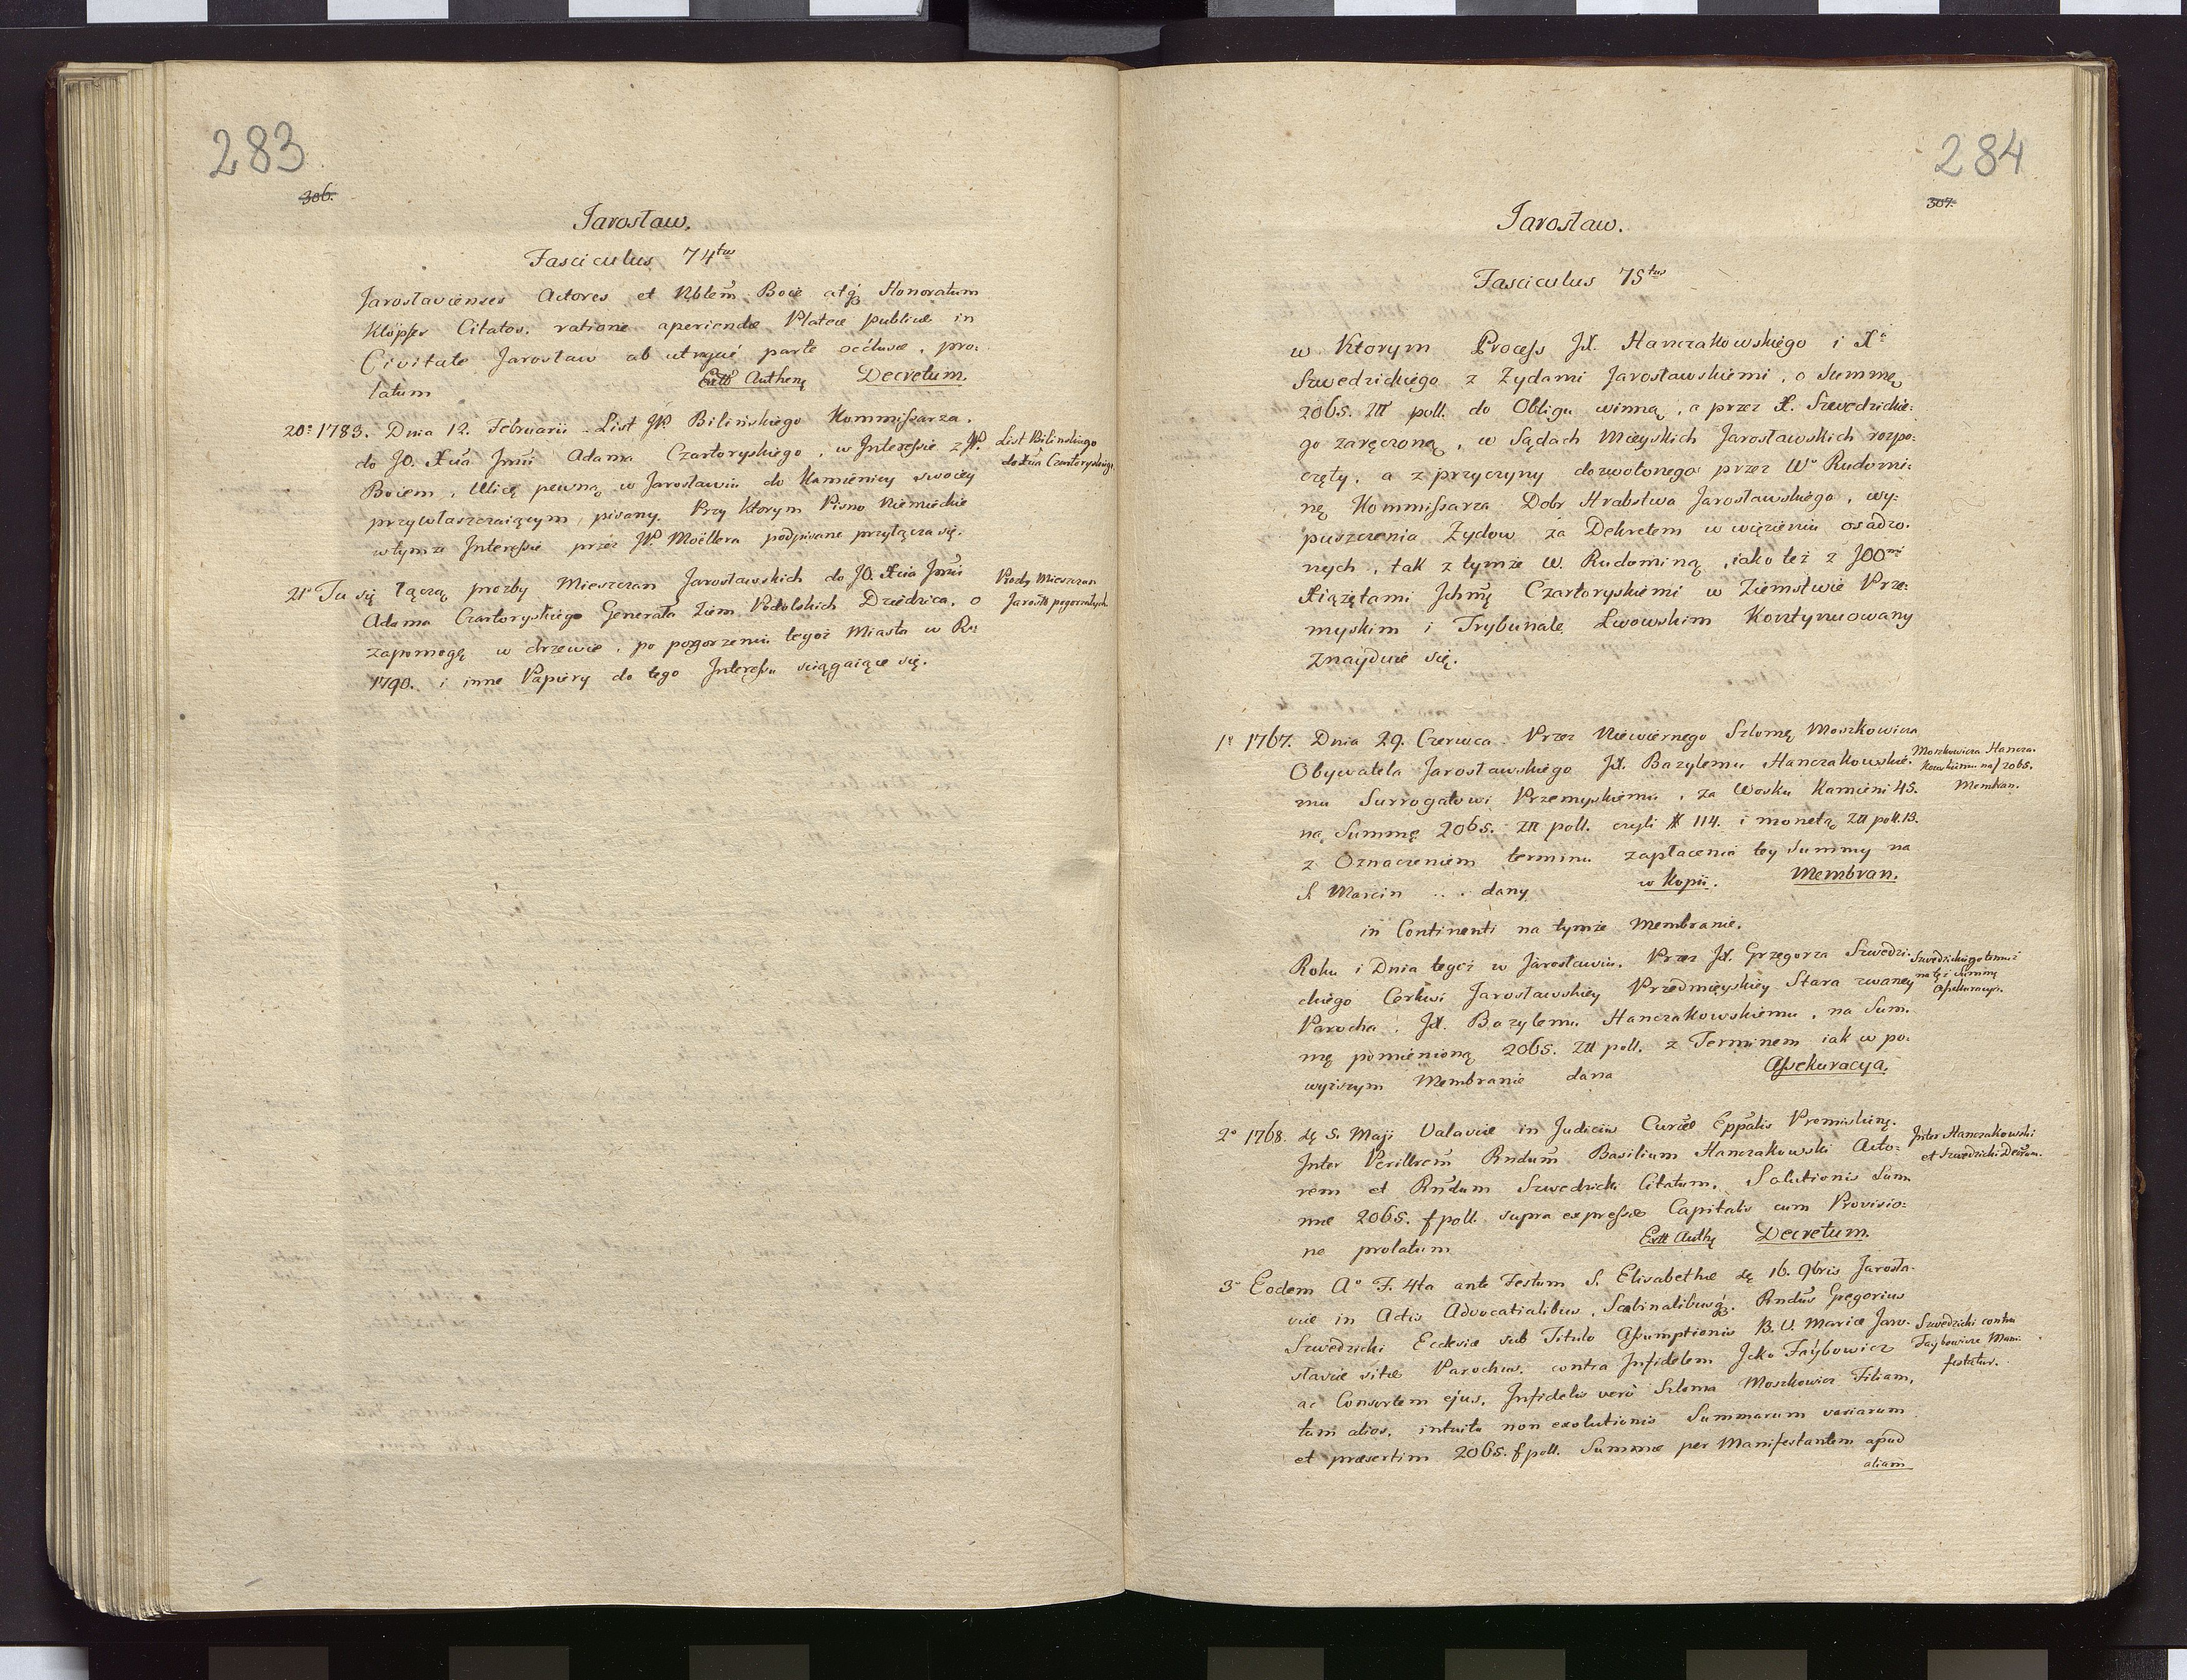 283
306.
Jarosław.
Fasciculus 74tus
Jaroslavienses Actores et Nblem Boie atq3 Honoratum
Klöpfer Citatos, ratione aperiendæ Plateæ publicæ in
Civitate Jarosław ab utraque parte occlusæ, pro:
latum Extt Authenq Decretum.
20° 1783. Dnia 12. Februarii List JP. Bilińskiego Kommissarza,
do JO. Xcia Jmći Adama Czartoryskiego, w Interessie z JP.
Boiem, Ulicę pewną w Jarosławiu do Kamienicy swoiey
przywłaszczaiącym, pisany. Przy Ktorym Pismo Niemieckie
w tymże Interessie przez JP. Moëllera podpisane przyłącza się.
List Bilinskiego
do Xcia Czartoryskiego
21° Tu się łączą prozby Mieszczan Jarosławskich do JO. Xcia Jmći
Adama Czartoryskiego Generała Ziem Podolskich Dziedzica, o
zapomogę w drzewie, po pogorzeniu tegoż Miasta w Ru
1790. i inne Papiery do tego Interessu sciągaiące się.
Prozby Mieszczan
Jarosłł pogorzałych
284
307.
Jarosław.
Fasciculus 75tus
w Ktorym Process JX. Hanczakowskiego i Xa
Szwedzickiego z Zydami Jarosławskiemi, o Summę
2065. Złł poll. do Obligu winną, a przez X. Szwedzickie:
go zaręczoną, w Sądach Mieyskich Jarosławskich rozpo:
częty, a z przyczyny dozwolonego przez Wo Rudomi:
nę Kommissarza Dobr Hrabstwa Jarosławskiego, wy:
puszczenia Zydow za Dekretem w więzieniu osadzo:
nych, tak z tymże W. Rudominą, iako też z JOOmi
Xiążętami Jchmę Czartoryskiemi w Ziemstwie Prze:
myskim i Trybunale Lwowskim Kontynuowany
znayduie się.
1° 1767. Dnia 29. Czerwca. Przez Niewiernego Szlomę Moszkowicza
Obywatela Jarosławskiego JX. Bazylemu Hanczakowskie:
mu Surrogatowi Przemyskiemu, za Wosku Kamieni 45.
na Summę 2065. Złł poll. czyli # 114. i monetą Złł poll. 13.
z Oznaczeniem terminu zapłacenia tey Summy na
S. Marcin . . . dany w Kopii. Membran.
Moszkowicza Hancza:
kowskiemu na f 2065.
Membran.
in Continenti na tymże Membranie.
Roku i Dnia tegoż w Jarosławiu. Przez JX. Grzegorza Szwedzi:
ckiego Cerkwi Jarosławskiey Przedmieyskiey Stara zwaney
Parocha, JX. Bazylemu Hanczakowskiemu, na Sum:
mę pomienioną 2065. Złł poll. z Terminem iak w po:
wyższym Membranie dana Assekuracya.
Szwedzickiego temuż
na tęż Summę
Assekuracya.
2° 1768. dę 5. Maji Valaviæ in Judiciis Curiæ Eppalis Premislienę.
Inter Perillrem Rndum Basilium Hanczakowski Acto:
rem et Rndum Szwedzicki Citatum, Solutionis Sum
mæ 2065. f poll. supra expressæ Capitalis cum Provisio:
ne prolatum Extt Authę Decretum.
Inter Hanczakowski
et Szwedzicki Decrtum.
3° Eodem A° F. 4ta ante Festum S. Elisabethæ dę 16. 9bris Jarosła:
viæ in Actis Advocatialibus, Scabinalibusq3. Rndus Gregorius
Szwedzicki Ecclesiæ sub Titulo Assumptionis B. V. Mariæ Jaro:
slaviæ sitæ Parochus, contra Infidelem Jcko Faybowicz
ac Consortem ejus, Infidelis verò Szloma Moszkowicz Filiam,
tum alios, intuitu non exolutionis Summarum variarum
et præsertim 2065. f poll. Summæ per Manifestantem apud
aliam
Szwedzicki contra
Faybowicza Mani:
festatur.